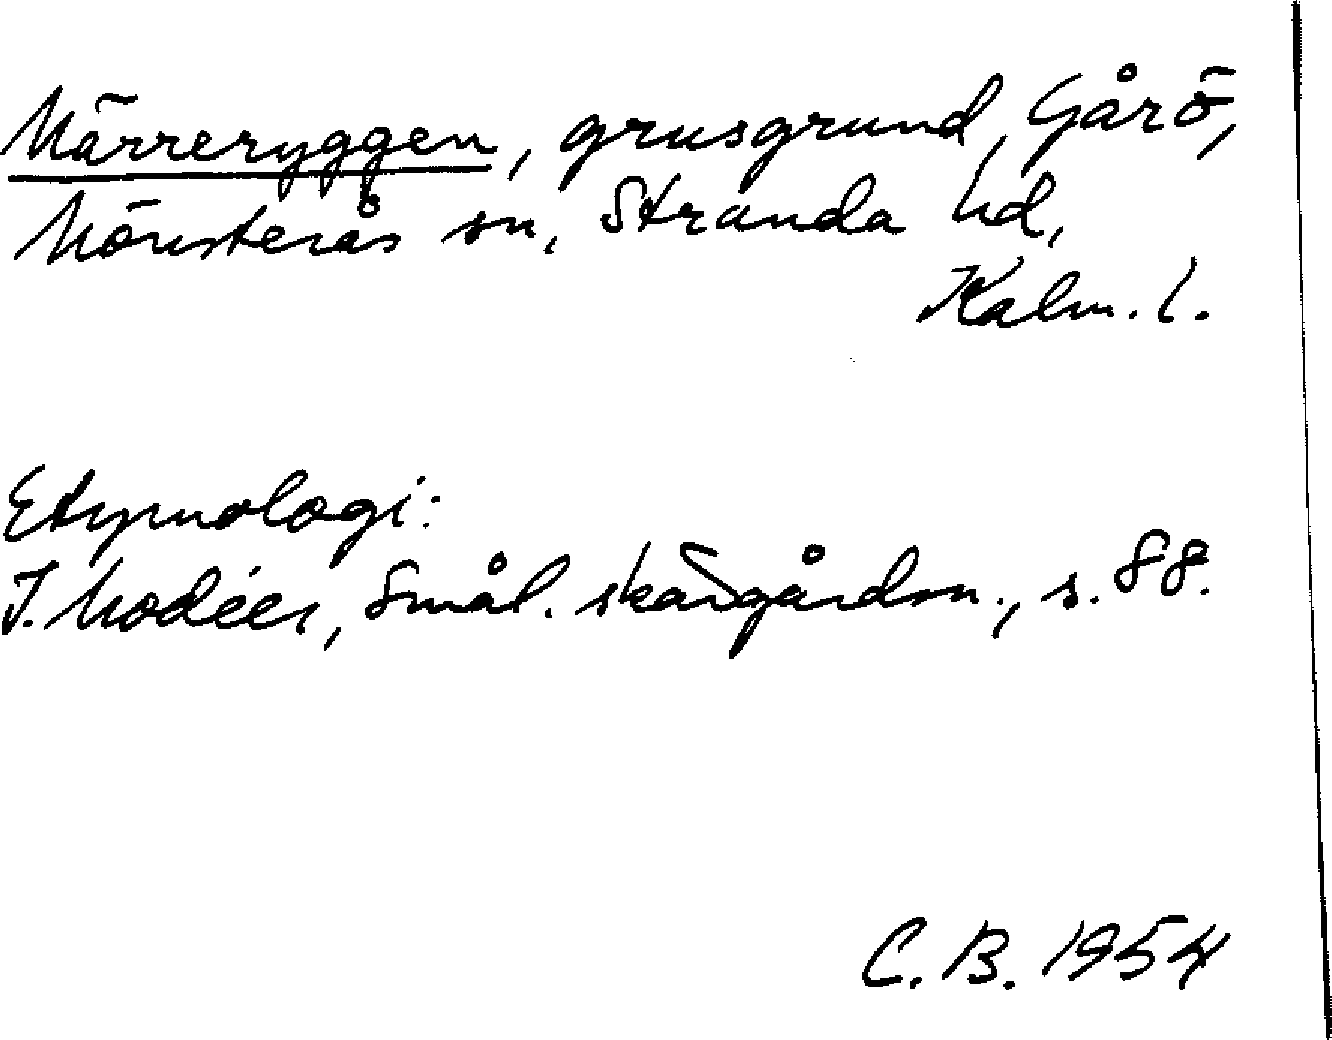 Märreryggen, grusgrund, Gårö,
Mönsterås sn, Stranda hd,
Kalm. l.
Etymologi:
I. Modéer, Smål. skärgårdsn., s. 88.
C. B. 1954